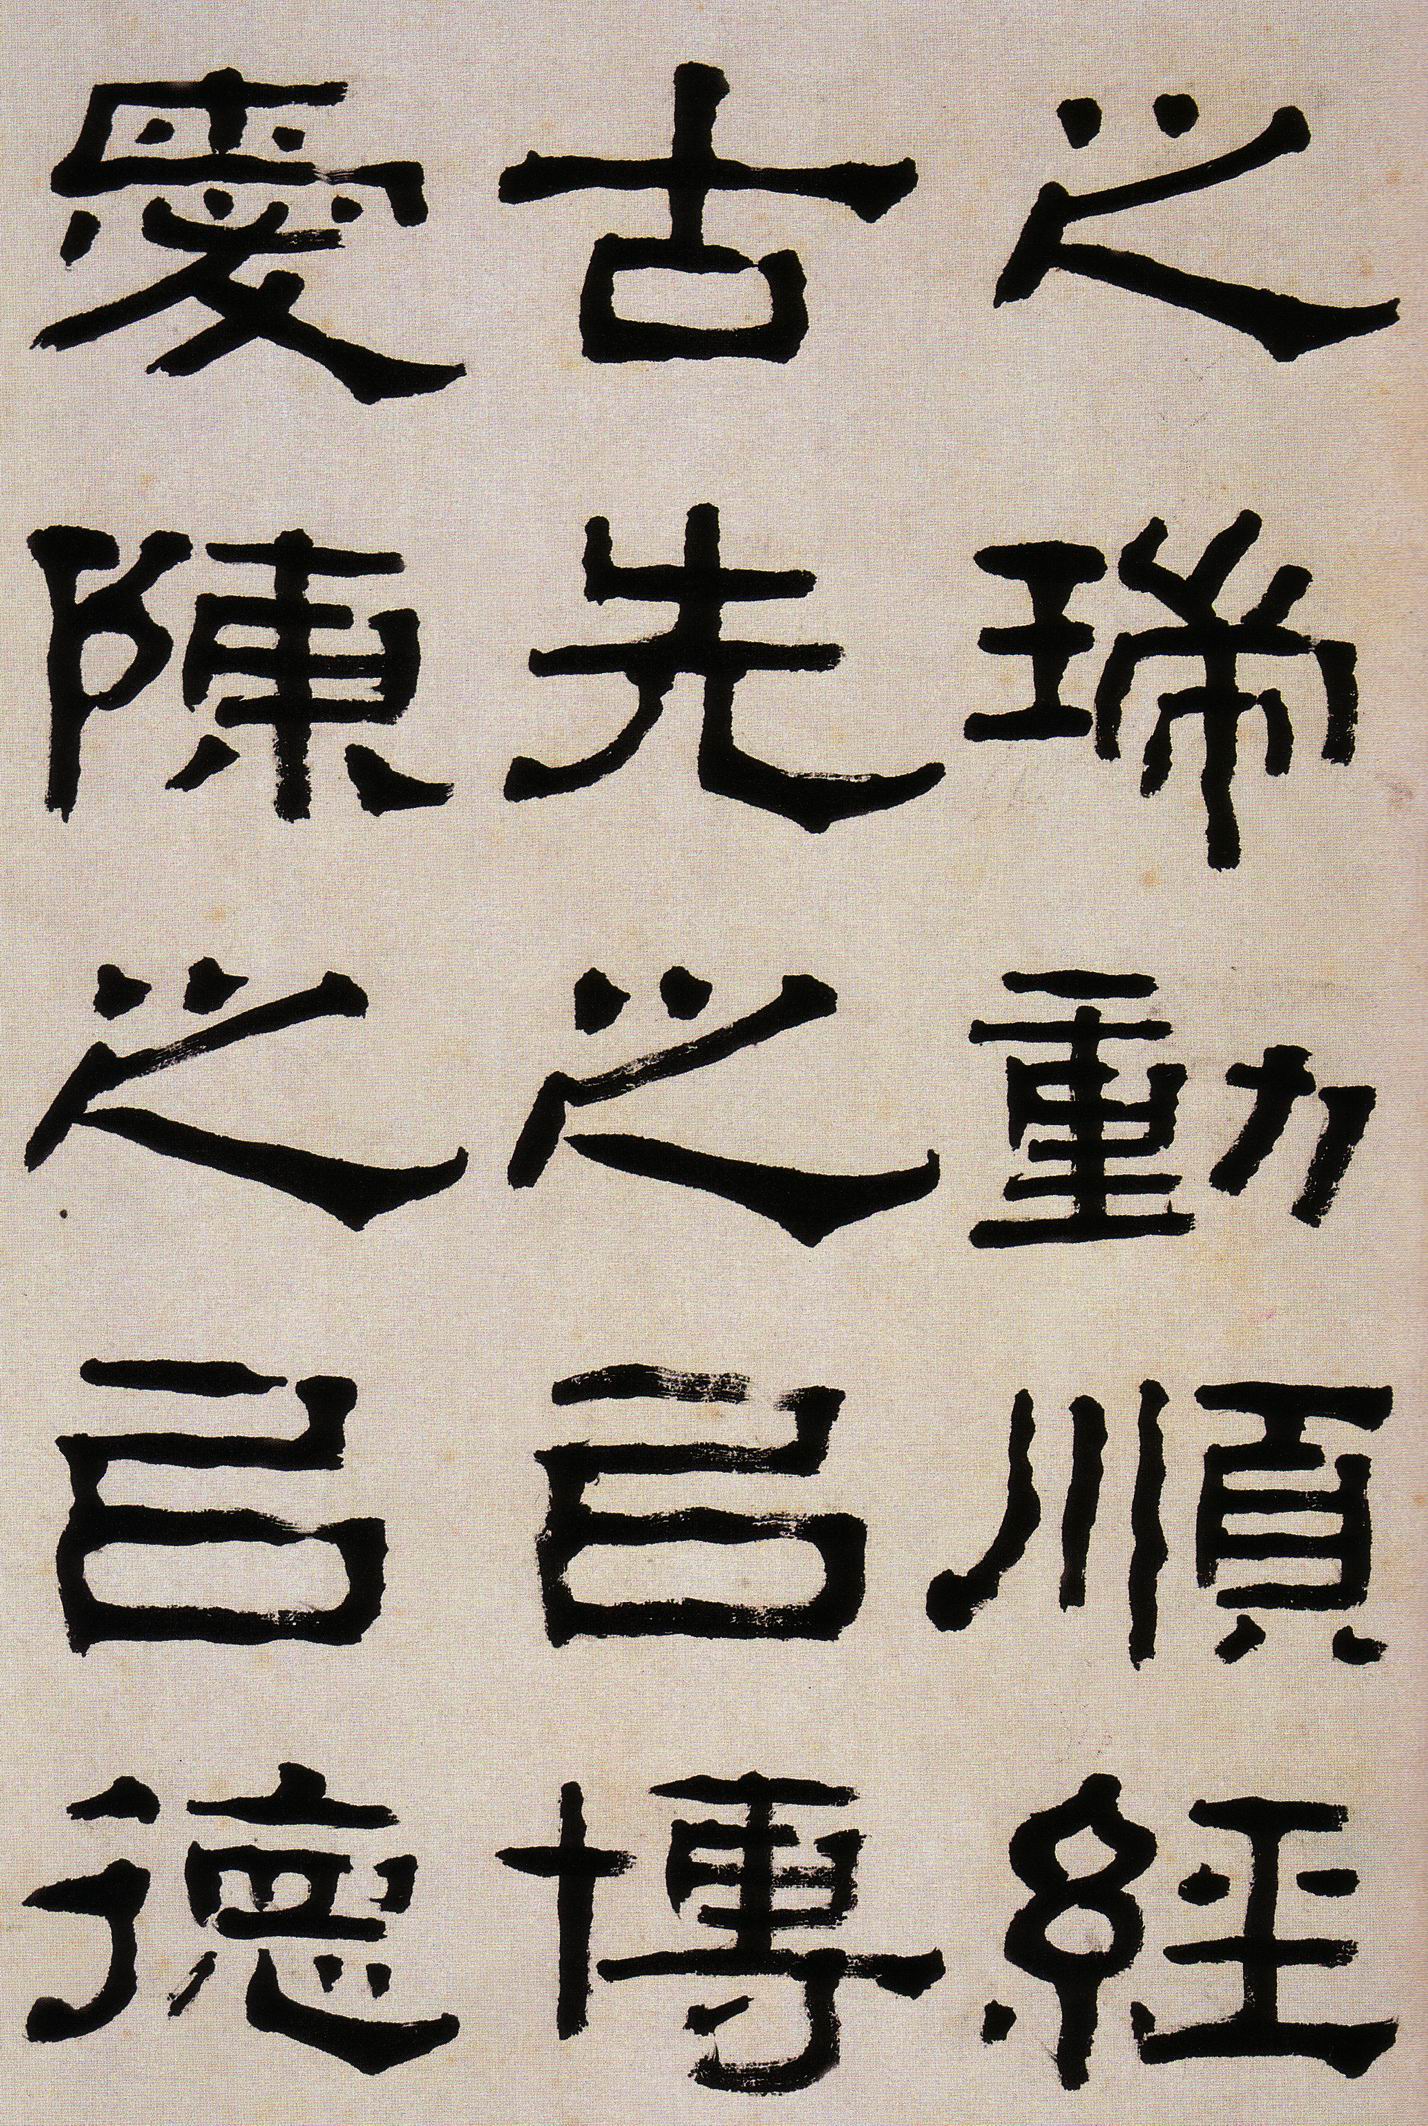 之瑞動順經
古先之以博
愛陳之以德